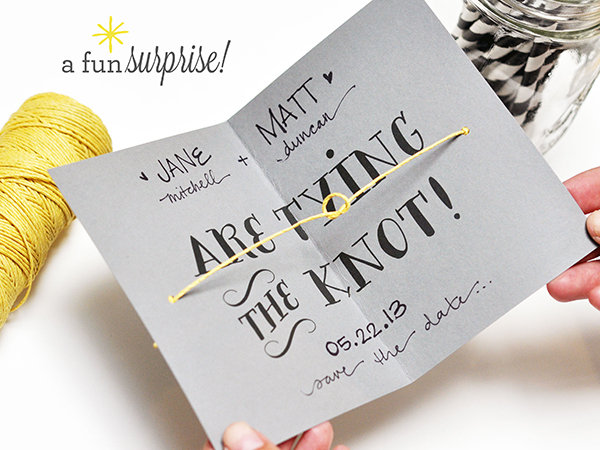 a fun surprise!
JANE + MATT
mitchell duncan
ARE TYING
THE KNOT!
05.22.13
save the date...